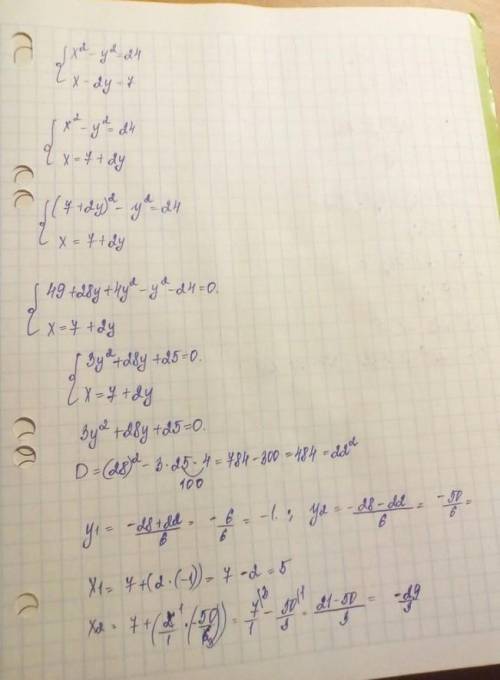 { x² - y² = 24
x - 2y = 7
{ x² - y² = 24
x = 7 + 2y
{ (7 + 2y)² - y² = 24
x = 7 + 2y
{ 49 + 28y + 4y² - y² - 24 = 0.
x = 7 + 2y
{ 3y² + 28y + 25 = 0.
x = 7 + 2y
3y² + 28y + 25 = 0.
D = (28)² - 3·25·4 = 784 - 300 = 484 = 22²
100
y₁ = (-28+22)/6 = -6/6 = -1. ; y₂ = (-28-22)/6 = -50/6 =
x₁ = 7 + (2·(-1)) = 7 - 2 = 5
x₂ = 7 + (2/1 · (-50/6)) = 7/1 - 50/3 = (21-50)/3 = -29/3